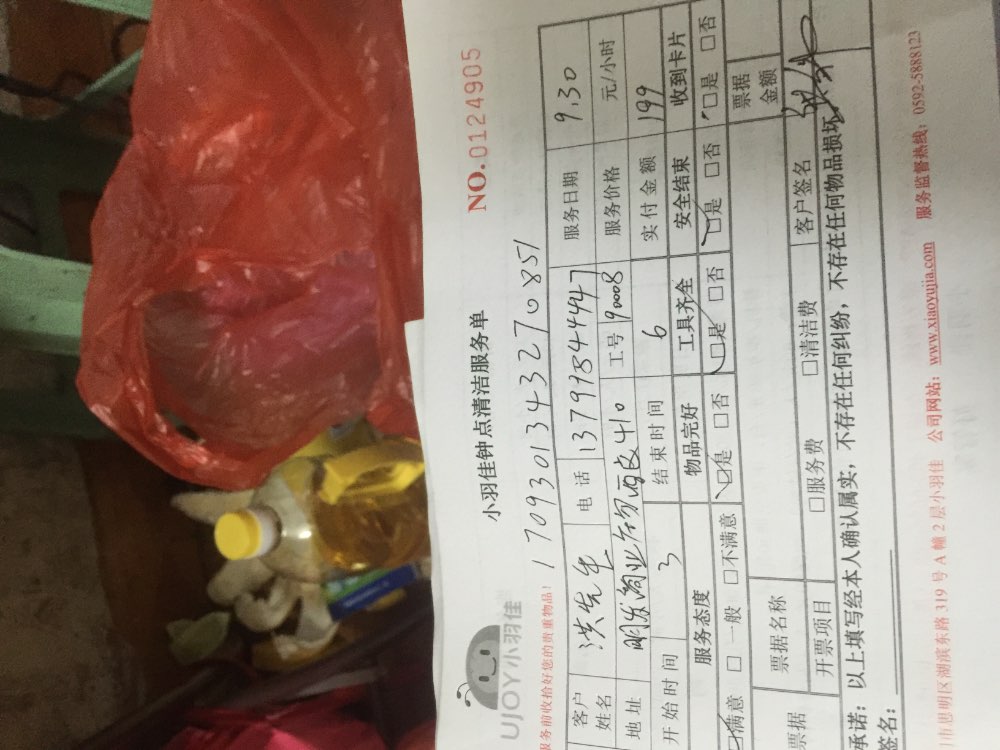 UJOY小羽佳
小羽佳钟点清洁服务单
NO.0124905
服务前收拾好您的贵重物品!
1709301343270851
客户姓名 洪先生 电话 13799844447 服务日期 9.30
地址 明发商业广场 410 工号 90008 服务价格 元/小时
开始时间 3 结束时间 6 实付金额 199
服务态度 物品完好 工具齐全 安全结束 收到卡片
满意 □ 一般 □不满意 □是 □否 □是 □否 □是 □否 □是 □否
票据 票据名称 票据金额
开票项目 □服务费 □清洁费 客户签名
承诺:以上填写经本人确认属实,不存在任何纠纷,不存在任何物品损坏
签名:
市思明区湖滨东路 319 号 A 幢 2 层小羽佳 公司网站:www.xiaoyujia.com 服务监督热线:0592-5888123